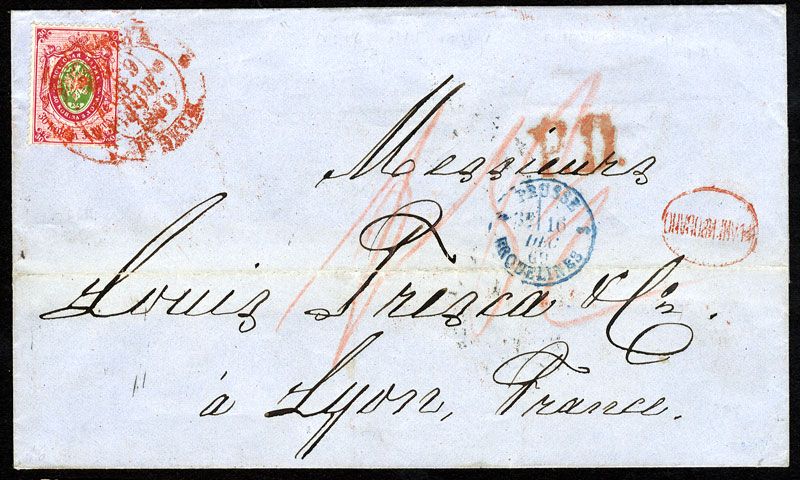 P.D.
Messieurs
PRUSSE
3E 16
DEC
69
ERQUELINES
Louis Fresca & Cie.
à Lyon, France.